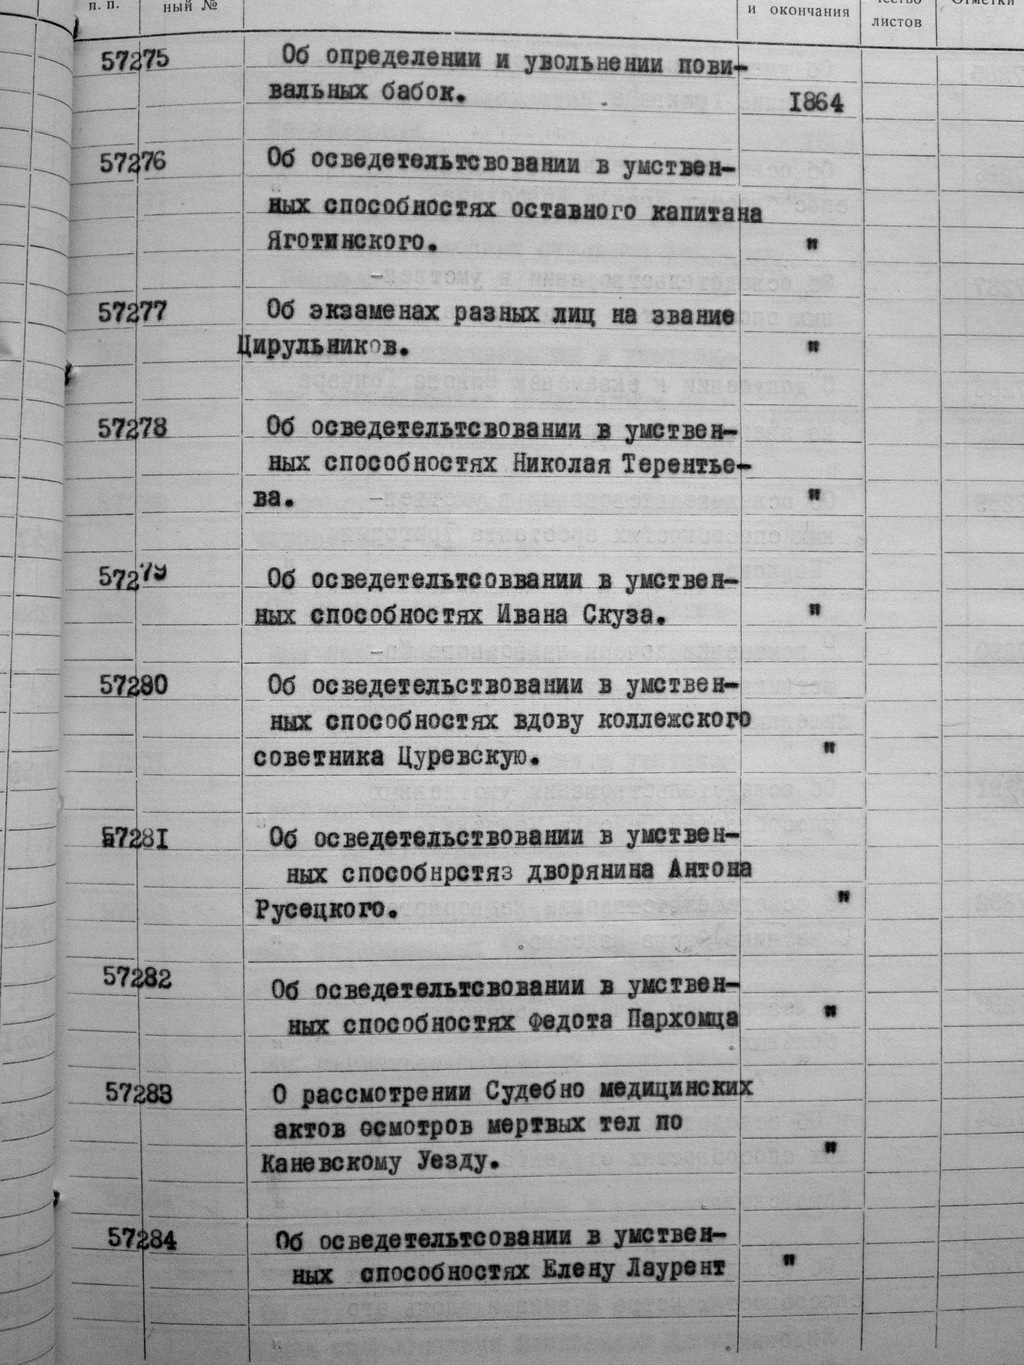 п. п.
ный №
и окончания
листов
57275 Об определении и увольнении пови-
вальных бабок. 1864
57276 Об осведетельтсвовании в умствен-
ных способностях оставного капитана
Яготинского. "
57277 Об экзаменах разных лиц на звание
Цирульников. "
57278 Об осведетельтсвовании в умствен-
ных способностях Николая Терентье-
ва. "
57279 Об осведетельтсоввании в умствен-
ных способностях Ивана Скуза. "
57280 Об осведетельствовании в умствен-
ных способностях вдову коллежского
советника Цуревскую. "
57281 Об осведетельствовании в умствен-
ных способнрстяз дворянина Антона
Русецкого. "
57282 Об осведетельтсвовании в умствен-
ных способностях Федота Пархомца "
57283 О рассмотрении Судебно медицинских
актов осмотров мертвых тел по
Каневскому Уезду. "
57284 Об осведетельтсовании в умствен-
ных способностях Елену Лаурент "